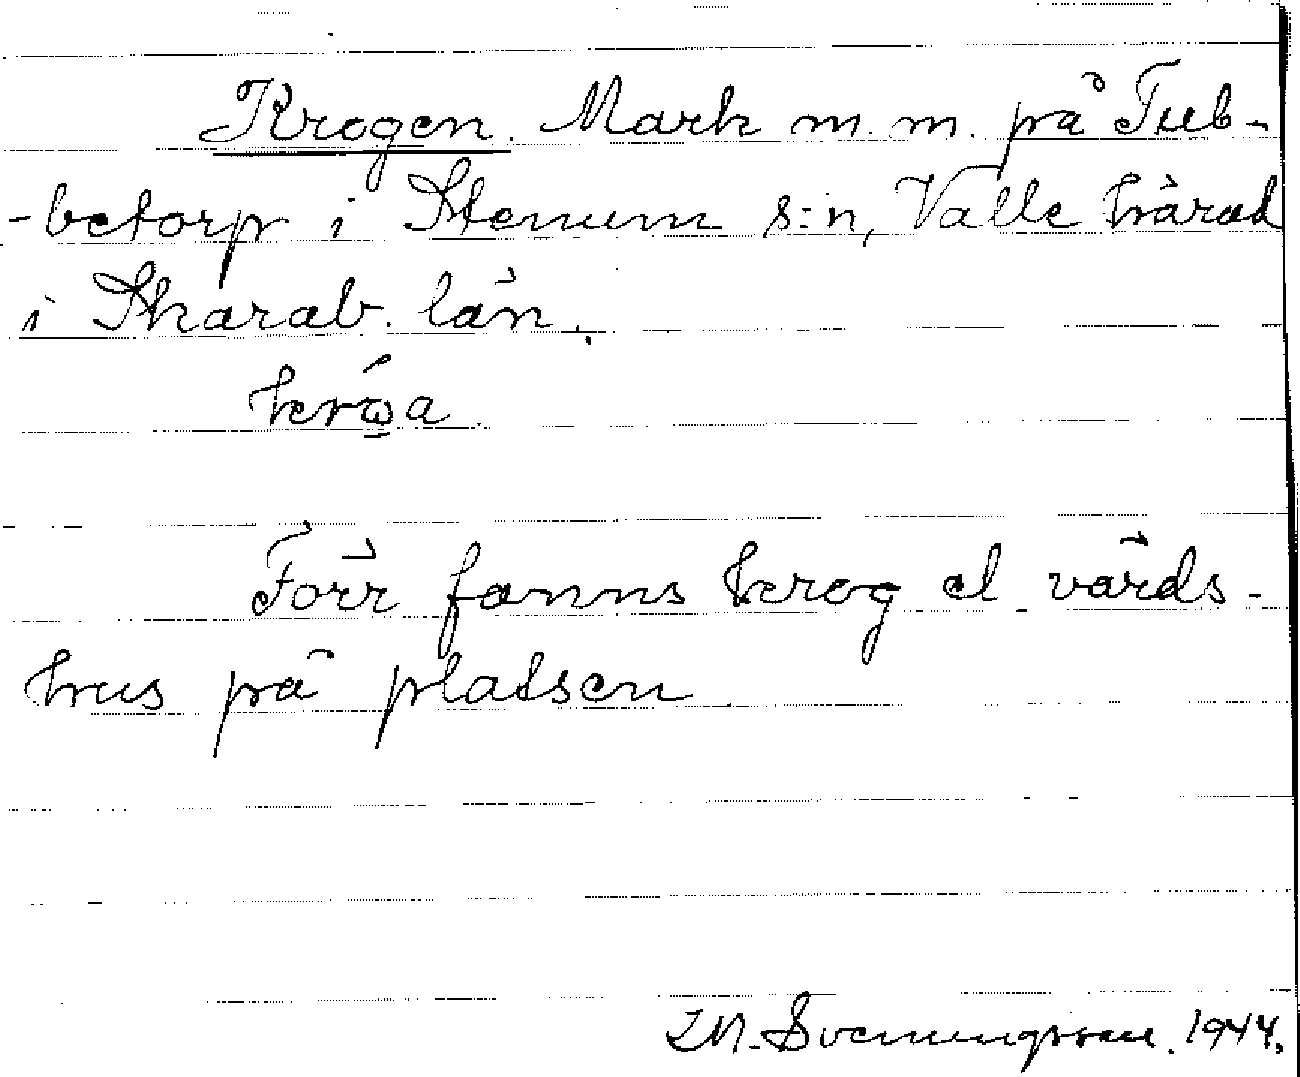 Krogen. Mark m.m. på Tub-
-betorp i Stenum s:n, Valle härad
i Skarab. län.
Förr fanns krog el. värds-
hus på platsen.
Svenungsson. 1944.